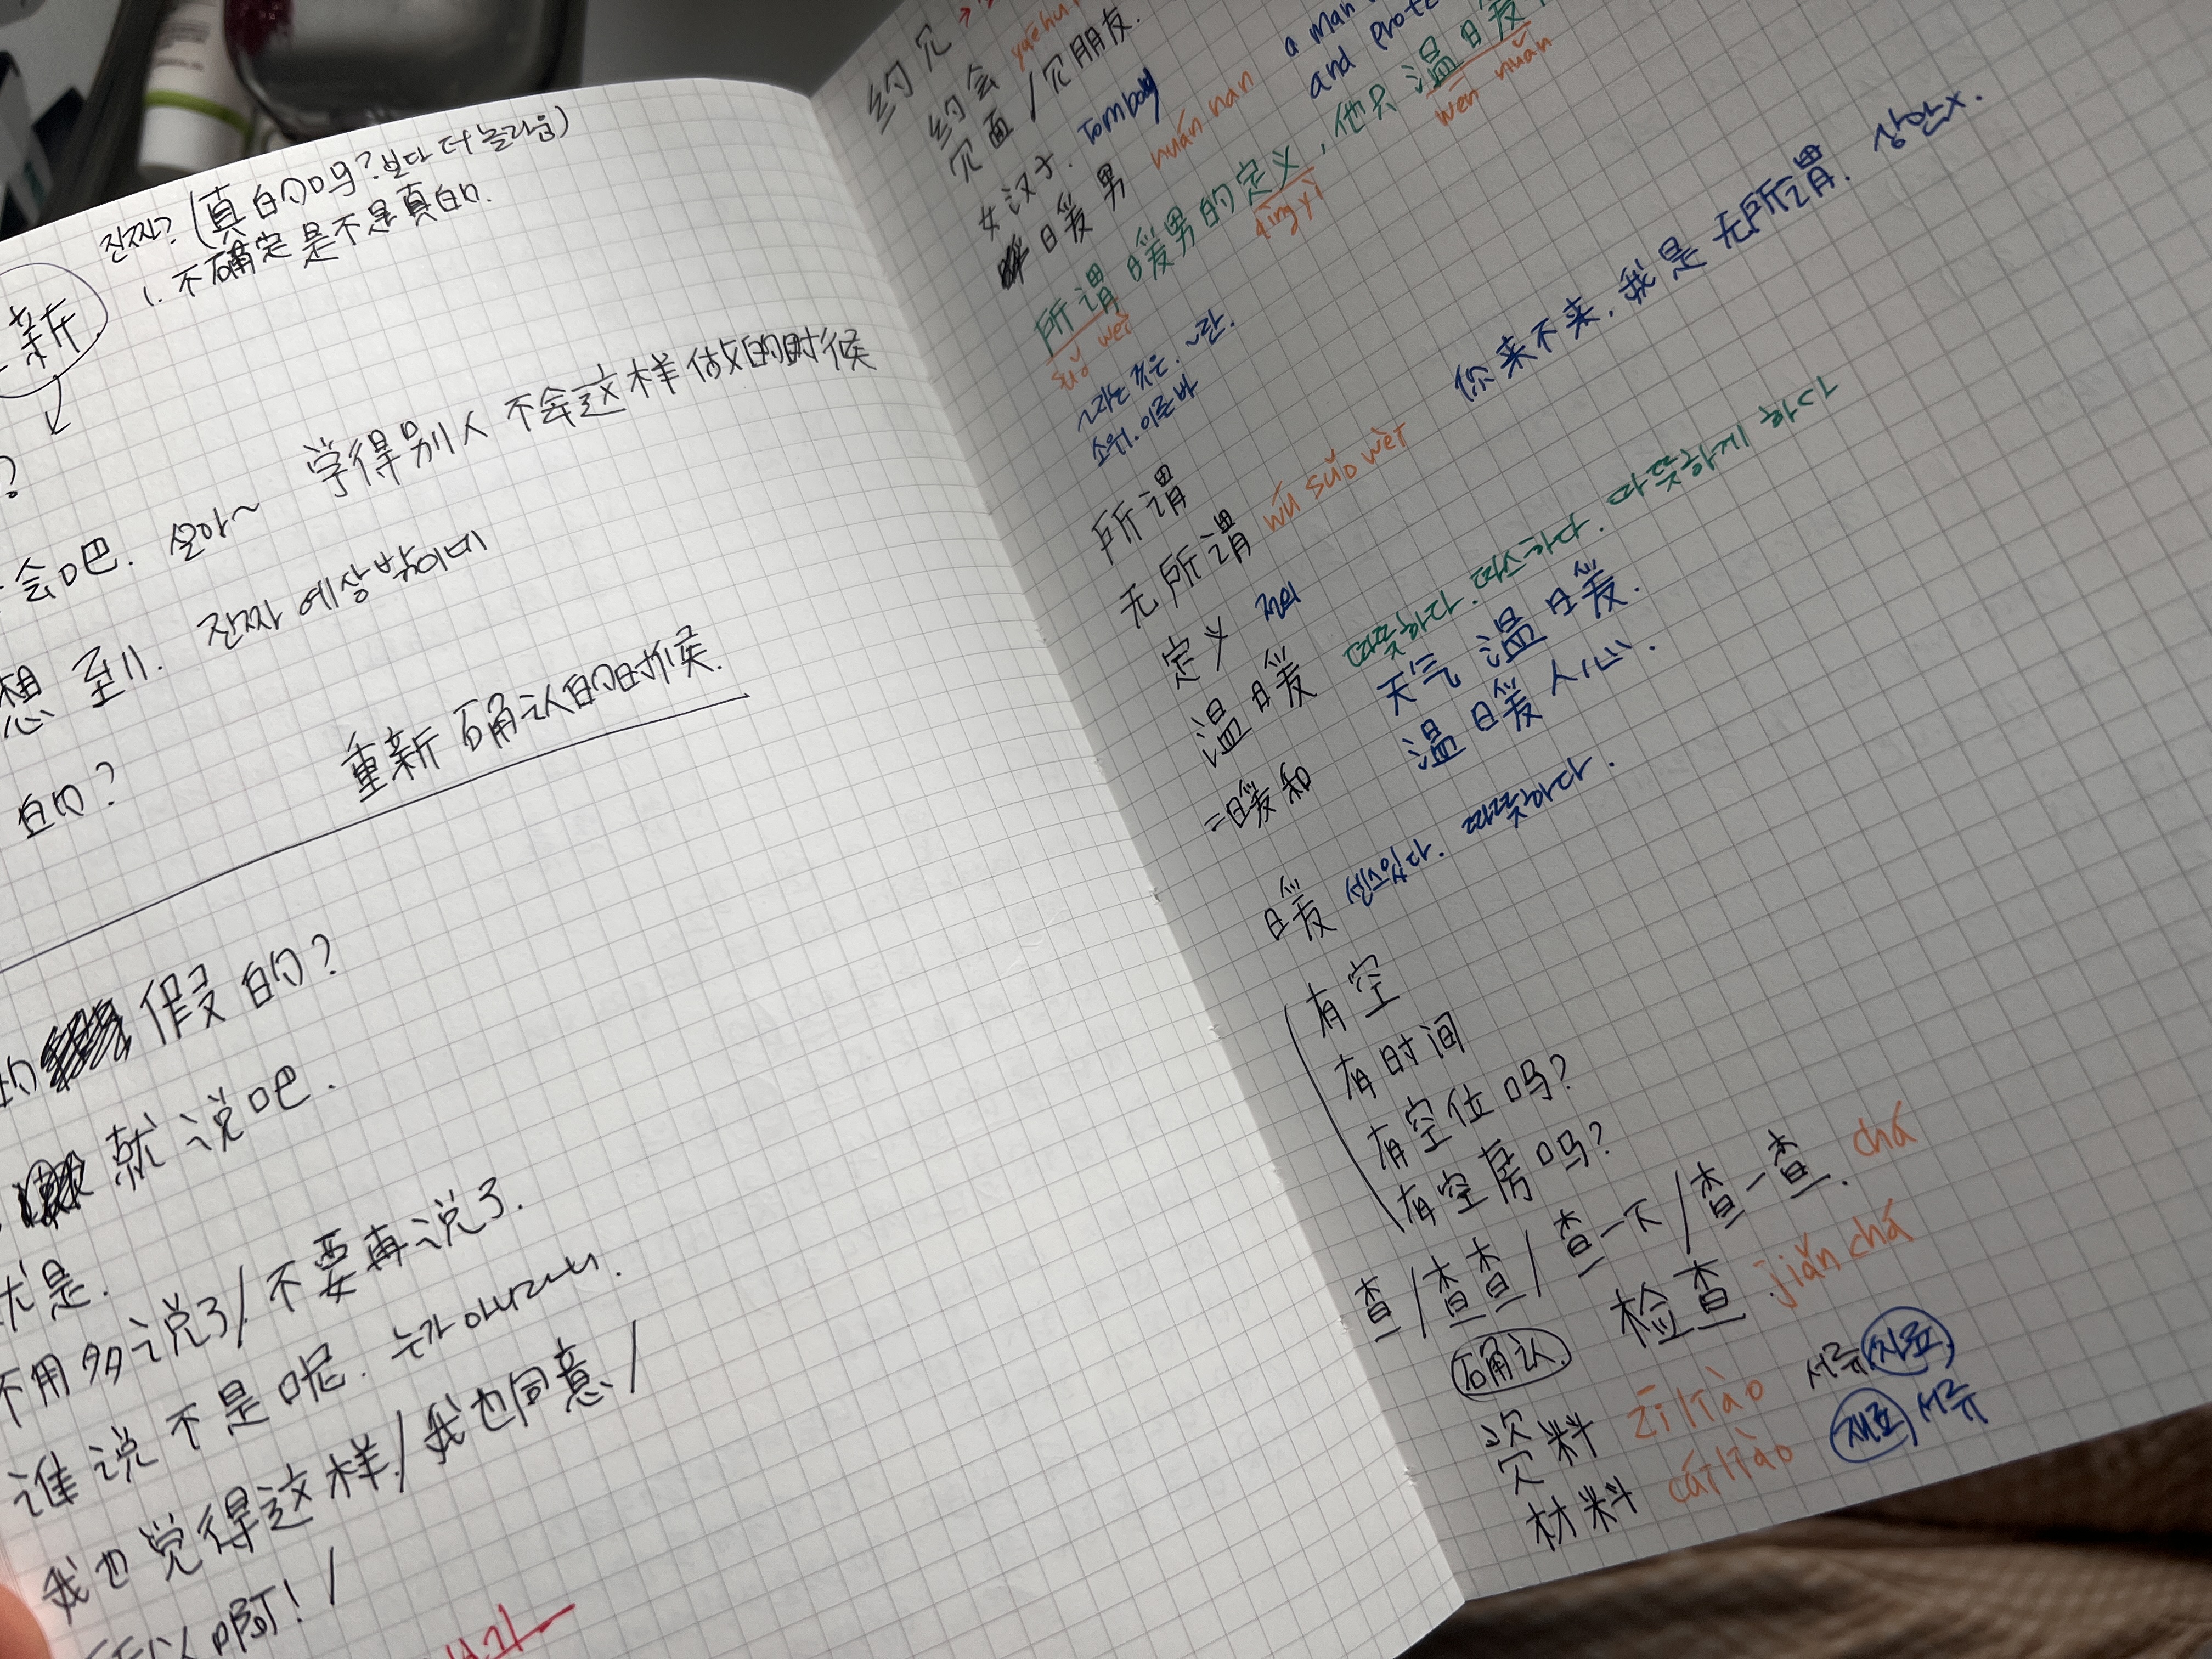 진짜? (真的吗? 보다 더 놀라움)
1. 不确定是不是真的.
新
?
会吧. 설마~ 学得别人不会这样做的时候
想到. 진짜 예상밖이네
的? 重新确认的时候.
的 假的?
就说吧.
就是.
不用多说了/不要再说了.
谁说不是呢. 누가 아니래니.
我也觉得这样/我也同意/
所以啊! /
约会
见面/见朋友.
女汉子. Tomboy
暖男 nuán nan a man
and prote
所谓暖男的定义, 他只温暖
suǒ wèi dìng yì wēn nuǎn
~라는 것은. ~란.
소위. 이른바
所谓
无所谓 wú suǒ wèi 你来不来, 我是无所谓. 상관x.
定义 정의
温暖 따뜻하다. 따스하다. 따뜻하게 하다
天气温暖.
=暖和 温暖人心.
暖 센스있다. 따뜻하다.
有空
有时间
有空位吗?
有空房吗?
查/查查/查一下/查一查. chá
确认. 检查 jiǎn chá
资料 zī liào 서류 자료
材料 cái liào 재료, 서류